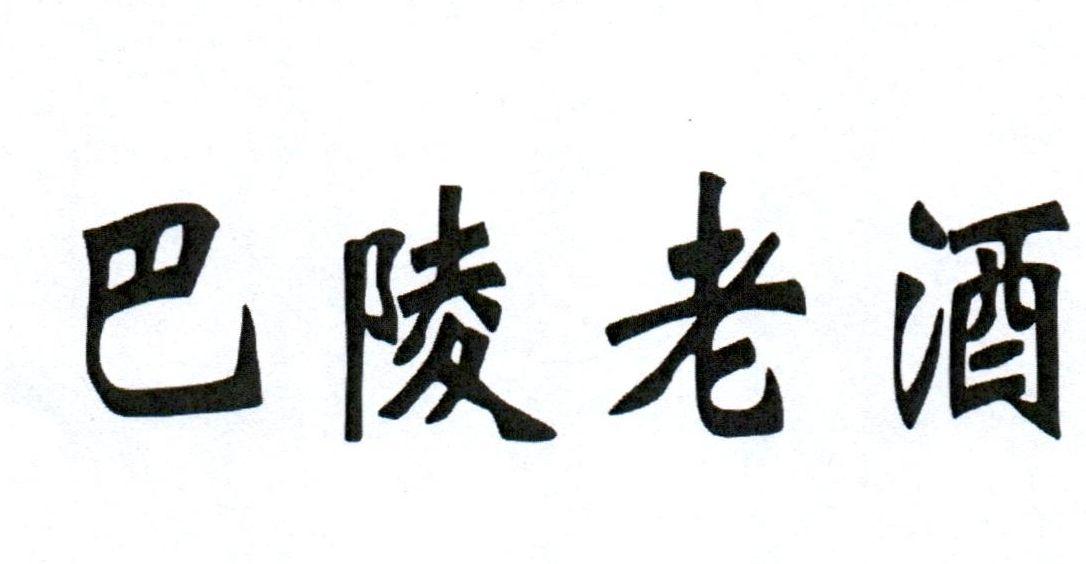 巴陵老酒